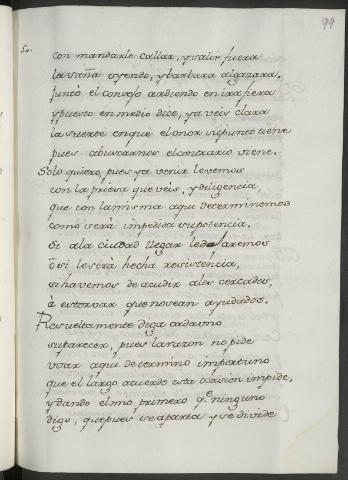 99
50.
con mandarle callar, y salir fuera
la vaña uyendo, y barbara algazara.
Juntò el consejo ardiendo en ira fiera
y puesto en medio dice, ya veis clara
la suerte en que el onor su punto tiene
pues a buscarnos el contrario viene.
Solo quiero, pues ya venir le vemos
con la priesa que veis, y diligencia,
que con la misma aqui determinemos
como será impedida su potencia.
Si a la ciudad llegar le dexaremos
ò si le será hecha resistencia,
si havemos de acudir a los cercados,
à estorvar que no sean ayudados.
Resueltamente diga cada uno
su parecer, pues la razon no pide
usar aqui de termino importuno
que el largo acuerdo esta ocasion impide,
y dando el mio primero q.e ninguno
digo, que pues se aparta y se divide